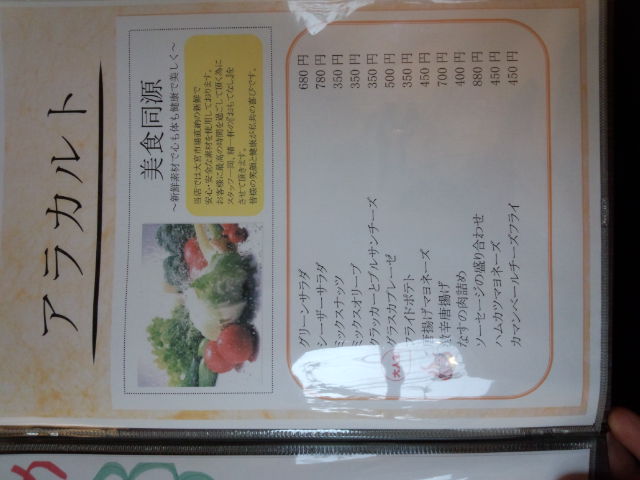 アラカルト
美食同源
～新鮮素材で心も体も健康で美しく～
当店では大宮市場直納の新鮮で
安心・安全な素材を使用しております。
お客様に最高の時間を過ごして頂く為に
スタッフ一同、精一杯の『おもてなし』を
させて頂きます。
皆様の笑顔と健康が私共の喜びです。
グリーンサラダ 680円
シーザーサラダ 780円
ミックスナッツ 350円
ミックスオリーブ 350円
クラッカーとブルサンチーズ 350円
グラスカプレーゼ 500円
フライドポテト 350円
唐揚げマヨネーズ 450円
激辛唐揚げ 700円
なすの肉詰め 400円
ソーセージの盛り合わせ 880円
ハムカツマヨネーズ 450円
カマンベールチーズフライ 450円